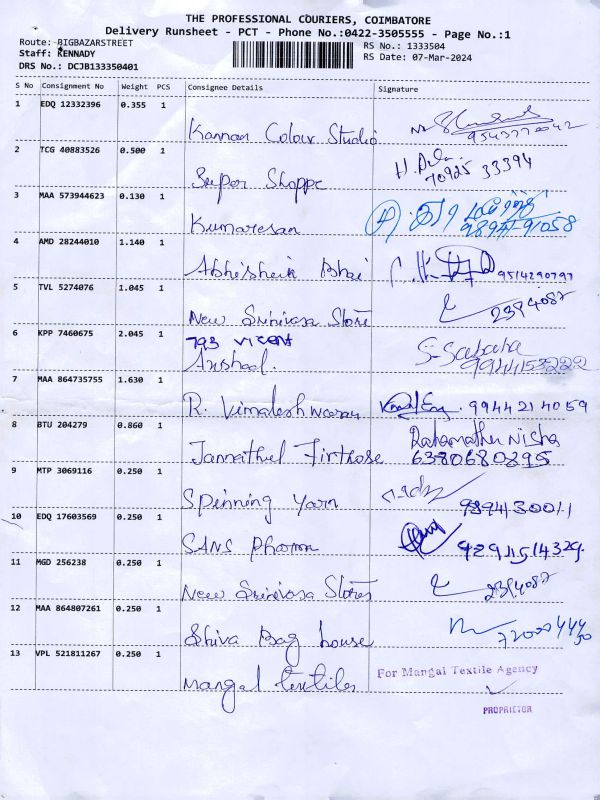 THE PROFESSIONAL COURIERS, COIMBATORE
Delivery Runsheet - PCT - Phone No.:0422-3505555 - Page No.:1
Route: BIGBAZARSTREET
Staff: KENNADY
DRS No.: DCJB133350401
RS No.: 1333504
RS Date: 07-Mar-2024
S No Consignment No Weight PCS Consignee Details Signature
1 EDQ 12332396 0.355 1
Kannan Colour Studio
2 TCG 40883526 0.500 1
Super Shoppe 70925 33394
3 MAA 573944623 0.130 1
Kumaresan
4 AMD 28244010 1.140 1
Abhisheik Bhai 9514290797
5 TVL 5274076 1.045 1
New Srinivasa Stores 2394087
6 KPP 7460675 2.045 1
793 Vicent
7 MAA 864735755 1.630 1
R. Vimaleshwaran 9944214059
8 BTU 204279 0.860 1
Jannathul Firthose
Rahamathu Nisha
6380680895
9 MTP 3069116 0.250 1
Spinning Yarn
10 EDQ 17603569 0.250 1
SANS Pharma
11 MGD 256238 0.250 1
New Srinivasa Stores 2394087
12 MAA 864807261 0.250 1
Shiva Bag house
13 VPL 521811267 0.250 1
mangal textiles
For Mangal Textile Agency
PROPRIETOR